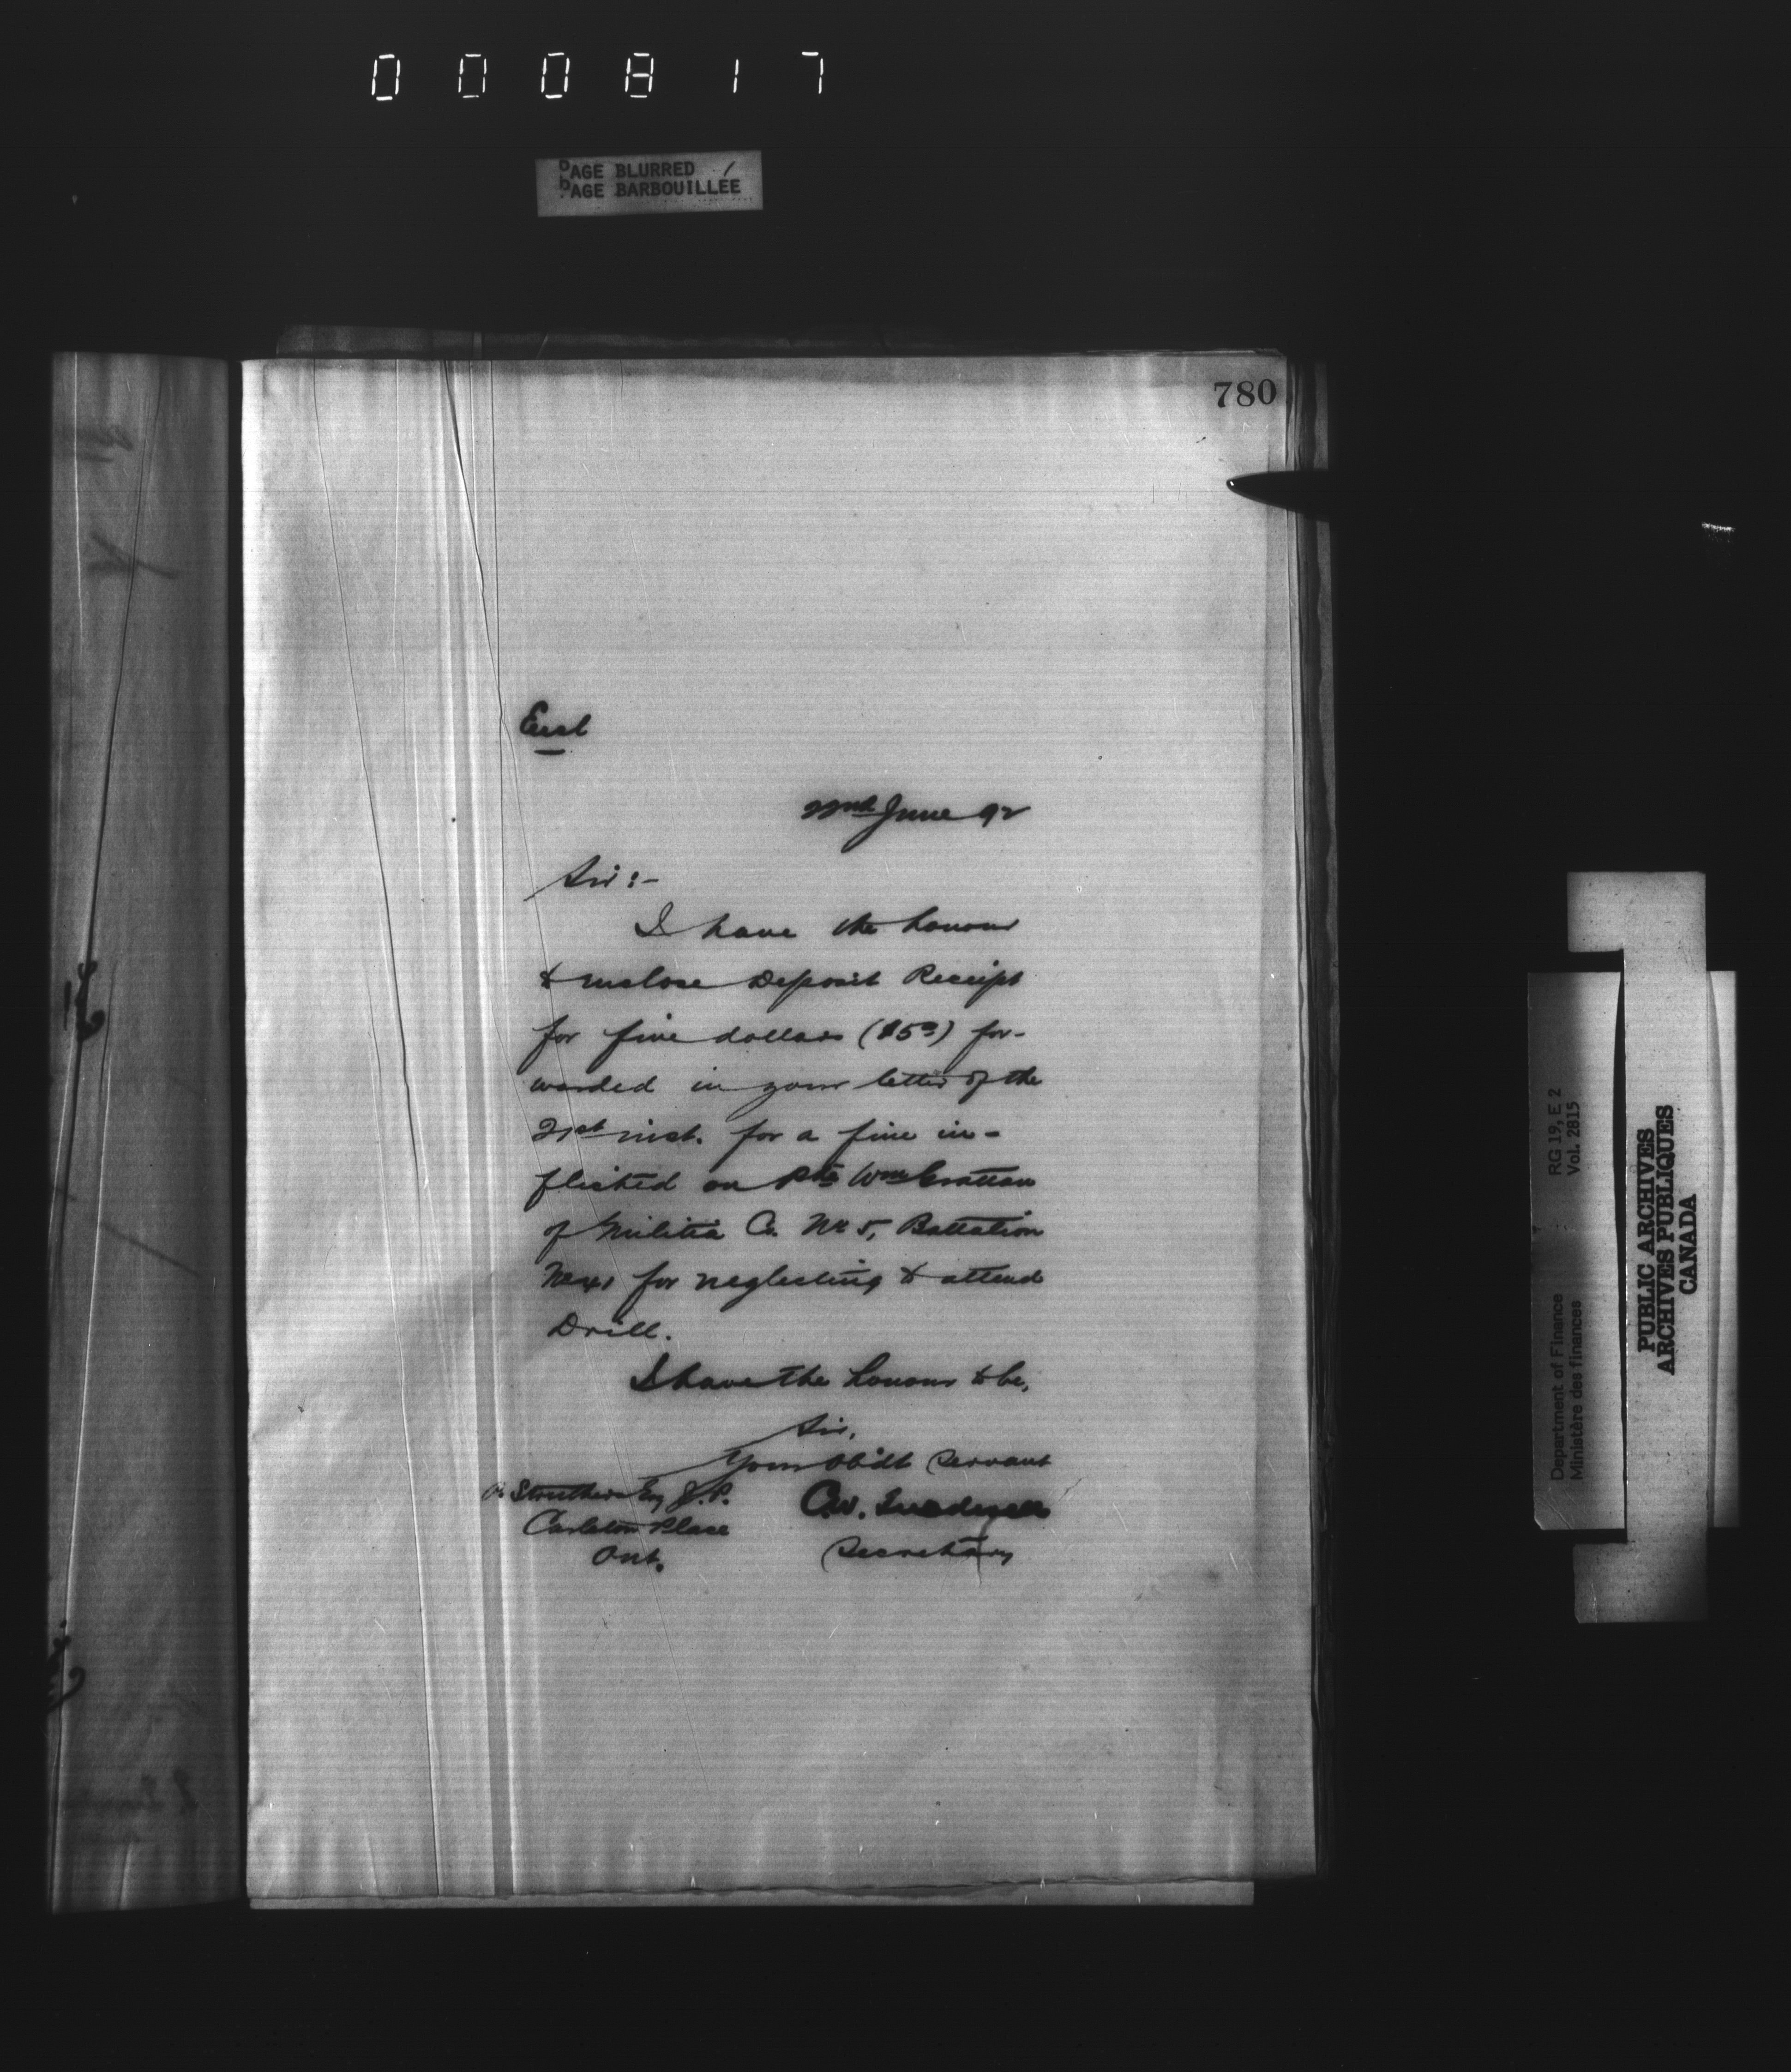 000817
PAGE BLURRED
PAGE BARBOUILLÉE
780
Encl
22nd June 92
Sir :-
I have the honour
to enclose Deposit Receipt
for five dollars ($5.00) for-
warded in your letter of the
21st inst. for a fine in-
flicted on Pte Wm Grattan
of Militia Co. No 5, Battalion
No 41 for neglecting to attend
Drill.
I have the honour to be,
Sir,
Your Obdt Servant
Struthers Esq J.P.
Carleton Place
Ont.
C.W.
Secretary
Department of Finance RG 19, E 2
Ministère des finances Vol. 2815
PUBLIC ARCHIVES
ARCHIVES PUBLIQUES
CANADA